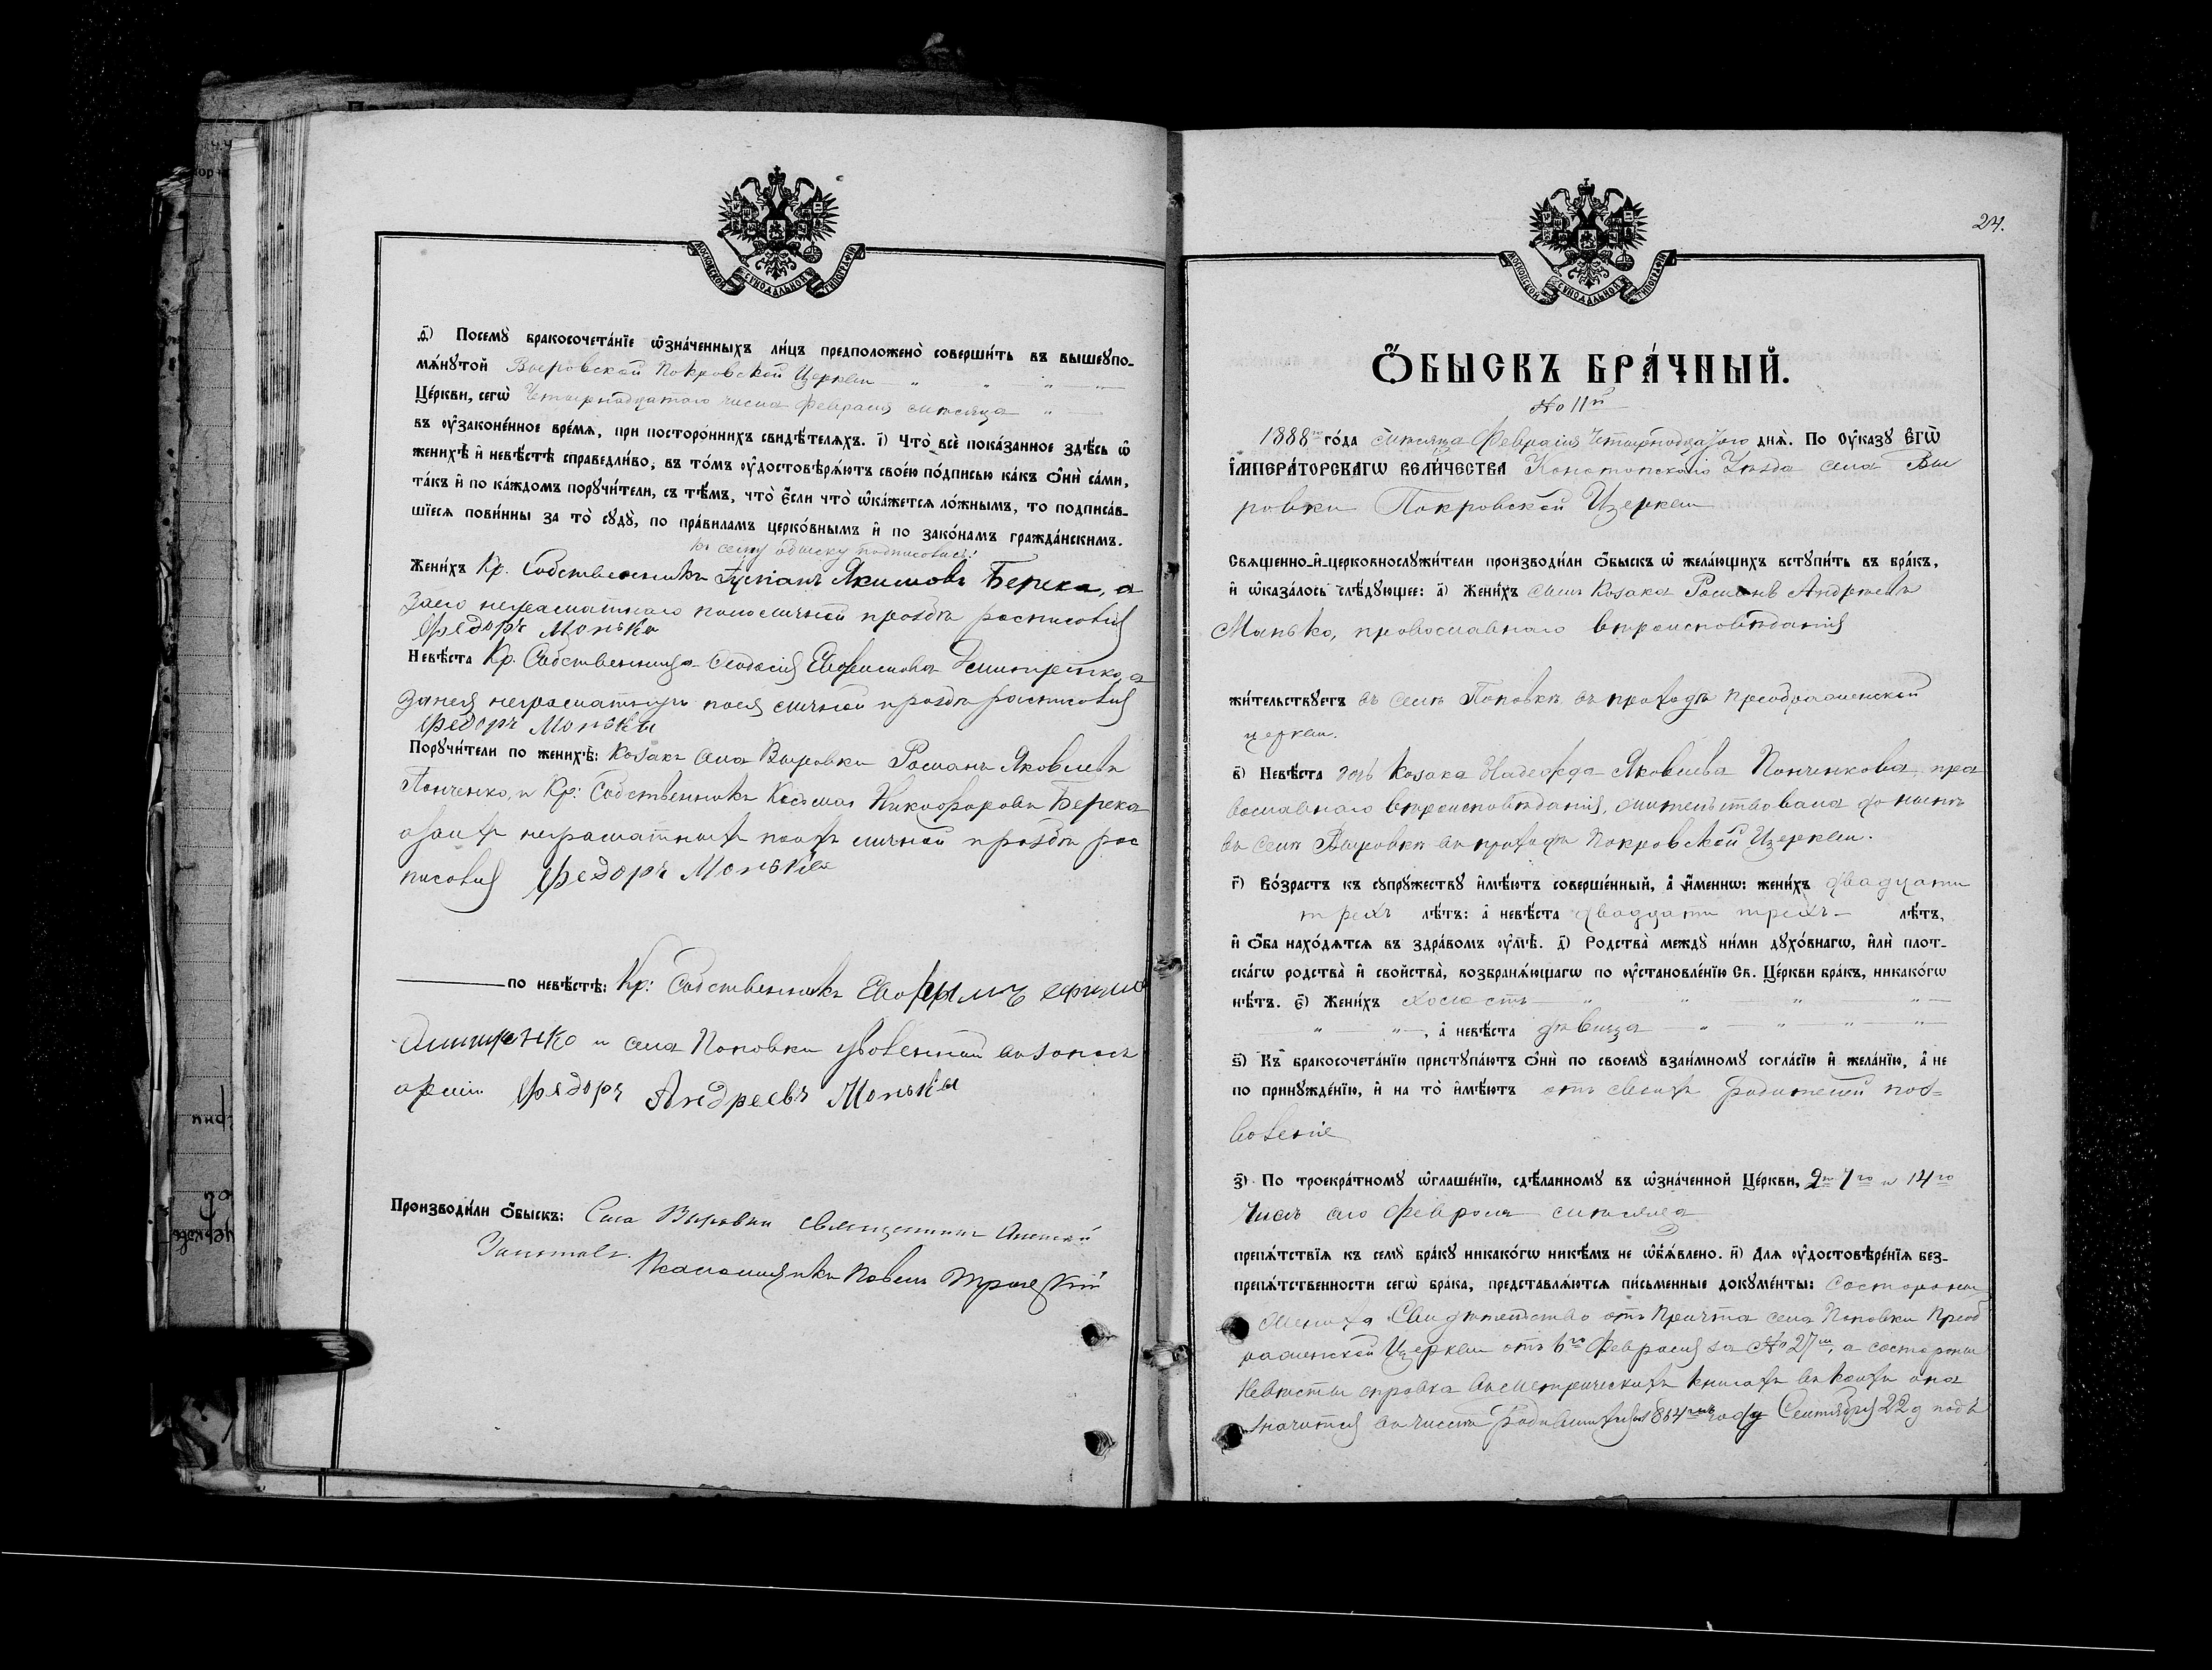 МОСКОВСКОЙ СѴНОДАЛЬНОЙ ТИПОГРАФІИ
д҃) Посемꙋ̀ бракосочета́нїе ѡ҆зна́ченныхъ ли́цъ предположено̀ соверши́ть въ вышеꙋпо-
мѧ́нꙋтой Выровской Покровской Церкви
Це́ркви, сегѡ̀ Четырнадцатаго числа Февраля мѣсяца
въ ᲂу҆зако́ненное вре́мѧ, при посторо́ннихъ свидѣ́телѧхъ. і҃) Что̀ всѐ пока́занное здѣ́сь ѡ҆
женихѣ̀ и҆ невѣ́стѣ справедли́во, въ то́мъ ᲂу҆достовѣрѧ́ютъ свое́ю по́дписью ка́къ ѻ҆нѝ са́ми,
та́къ и҆ по ка́ждомъ порꙋчи́тели, съ тѣ́мъ, что̀ є҆́сли что̀ ѡ҆ка́жется ло́жнымъ, то подписа́в-
шїеся пови́нны за то̀ сꙋдꙋ̀, по пра́виламъ церко́внымъ и҆ по зако́намъ гражда́нскимъ.
къ сему обыску подписались:
Жени́хъ Кр. Собственникъ Якимовъ Берека, а
заего неграмотнаго поеголичной прозьбѣ росписався
Федоръ Монька
Невѣ́ста Кр. Собственница Феодосія Евфимова Дмитренко, а
занея неграмотную поея личной прозьбѣ росписався
Федоръ Монька
Порꙋчи́тели по женихѣ̀: козакъ села Выровки Романъ Яковлевъ
Панченко, и Кр: Собственникъ Косьма Никифоровъ Берека
азаихъ неграмотныхъ поихъ личной прозьбѣ рос
писовця Федоръ Монька
по невѣ́стѣ: Кр: Собственникъ
Дмитренко и села Поповки уволенный взапасъ
арміи Федоръ Андреевъ Монька
Производи́ли ѻ҆́быскъ: Села Выровки священникъ Алексѣй
Псаломщикъ Павелъ Троецкій
24.
МОСКОВСКОЙ СѴНОДАЛЬНОЙ ТИПОГРАФІИ
Ѻ҆́БЫСКЪ БРА́ЧНЫЙ.
№ 11й
1888го го́да мѣсяца Февраля Четырнадцатого днѧ̀. По ᲂу҆ка́зꙋ Є҆гѡ̀
І҆мпера́торскагѡ Вели́чества Конотопскаго Уѣзда села Вы
ровки Покровской Церкви
Свѧще́нно-и҆-церковнослꙋжи́тели производи́ли ѻ҆́быскъ ѡ҆ жела́ющихъ встꙋпи́ть въ бра́къ,
и҆ ѡ҆каза́лось слѣ́дꙋющее: а҃) Жени́хъ сынъ козака Романъ Андреевъ
Манько, православнаго вѣроисповѣданія
жи́тельствꙋетъ въ селѣ Поповкѣ, въ приходѣ Преображенской
церкви.
в҃) Невѣ́ста дочь козака Надежда Яковлева Панченкова, пра
вославнаго вѣроисповѣданія, жительствовала до нынѣ
въ селѣ Выровкѣ въ приходѣ Покровской Церкви.
г҃) Во́зрастъ къ сꙋпрꙋ́жествꙋ и҆мѣ́ютъ соверше́нный, а҆ и҆́меннѡ: жени́хъ двадцати
трехъ лѣ́тъ: а҆ невѣ́ста двадцати трехъ лѣ́тъ,
и҆ ѻ҆́ба нахо́дѧтся въ здра́вомъ ᲂу҆мѣ̀. д҃) Родства̀ междꙋ̀ ни́ми дꙋхо́внагѡ, и҆лѝ плот-
ска́гѡ родства̀ и҆ сво́йства̀, возбранѧ́ющагѡ по ᲂу҆становле́нїю Св. Це́ркви бра́къ, никако́гѡ
нѣ́тъ. є҃) Жени́хъ холостъ
, а҆ невѣ́ста дѣвица
ѕ҃) Къ бракосочета́нїю пристꙋпа́ютъ ѻ҆нѝ по своемꙋ̀ взаи́мномꙋ согла́сїю и҆ жела́нїю, а҆ не
по принꙋжде́нїю, и҆ на то̀ и҆мѣ́ютъ отъ своихъ родителей поз=
воленіе
з҃) По троекра́тномꙋ ѡ҆глаше́нїю, сдѣ́ланномꙋ въ ѡ҆зна́ченной Це́ркви, 2го 7го и 14го
Числъ сего Февраля мѣсяца
препѧ́тствїѧ къ семꙋ̀ бра́кꙋ никако́гѡ никѣ́мъ не ѡ҆б̾ѧ́влено. и҃) Для ᲂу҆достовѣре́нїѧ без-
препѧ́тственности сегѡ̀ бра́ка, представлѧ́ютсѧ пи́сьменные докꙋме́нты: состороны
жениха Свидѣтельство отъ Причта села Поповки Преоб
раженской Церкви отъ 6го Февраля за № 27м, а состороны
Невѣсты справка въметрическихъ книгахъ въ коихъ она
значится въ числѣ родившихся 1864мъ году Сентября 22д под №